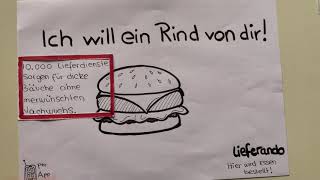 Ich will ein Rind von dir!
10.000 Lieferdienste
sorgen für dicke
Bäuche ohne
unerwünschten
Nachwuchs.
Lieferando
Hier wird Essen
bestellt!
per
App